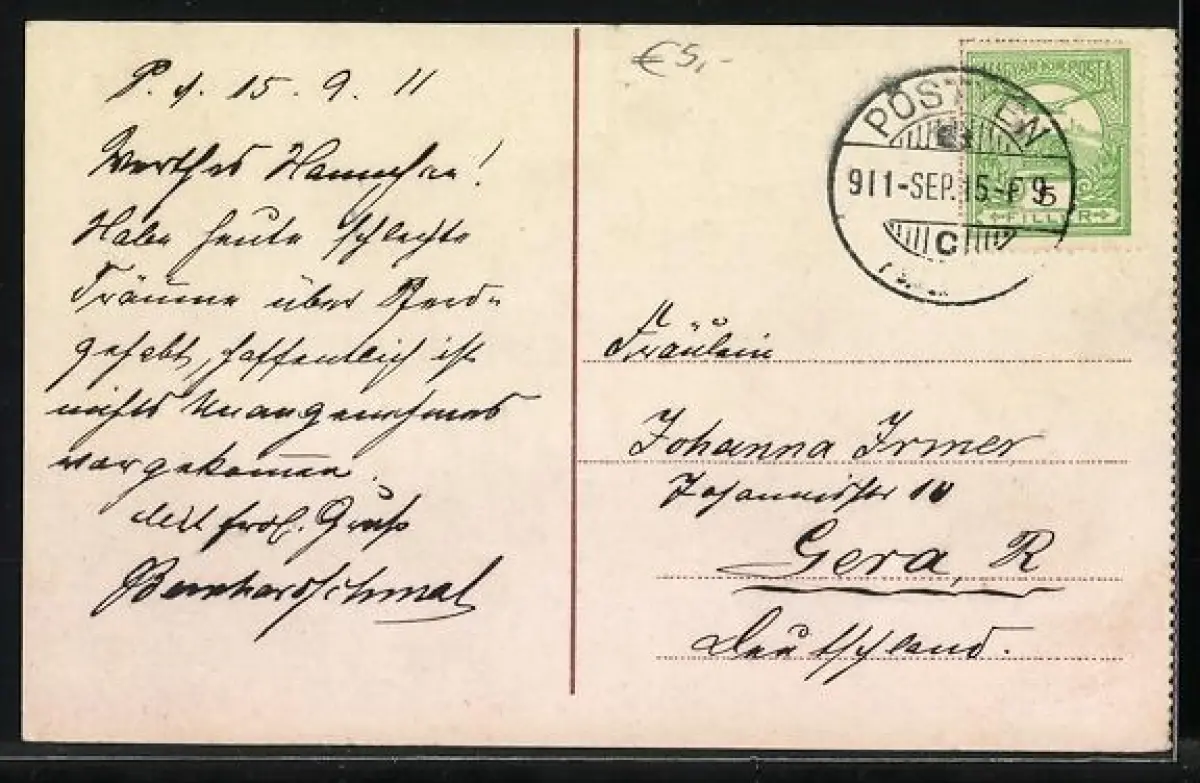 P. d. 15. 9. 11
Werthes Hannchen!
Habe heute schlechte
Träume über
gehabt, hoffentlich ist
nichts Unangenehmes
vorgekommen.
Mit frdl. Gruß
Bernhard Schmal
€5,-
MAGYAR KIR. POSTA
5
FILLÉR
PÖSTYÉN
911-SEP.15.-
C
Fräulein
Johanna Irmer
Johannisstr 10
Gera, R
Deutschland.